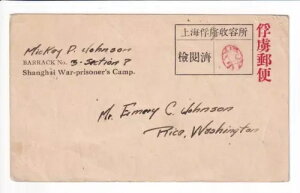 Mickey P. Johnson
BARRACK No. 3 - Section 8
Shanghai War-prisoner's Camp.
上海俘虜收容所
檢閲濟
俘虜郵便
Mr. Emery C. Johnson
Rice, Washington